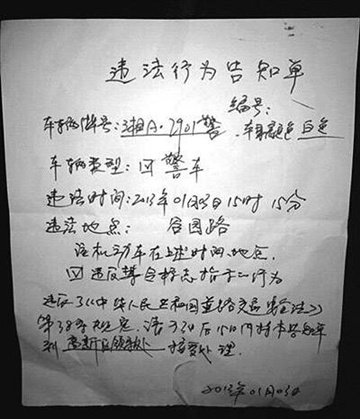 违法行为告知单
编号：
车辆牌号：湘A·2901警 车身颜色 白色
车辆类型：囗警车
违法时间：2013年01月03日15时15分
违法地点：谷园路
该机动车在上述时间、地点
违反禁令标志指示行为
违反了《中华人民共和国道路交通安全法》
第38条规定，请于3日后15日内持本告知单
到高新区领秩处接受处理。
2013年01月03日